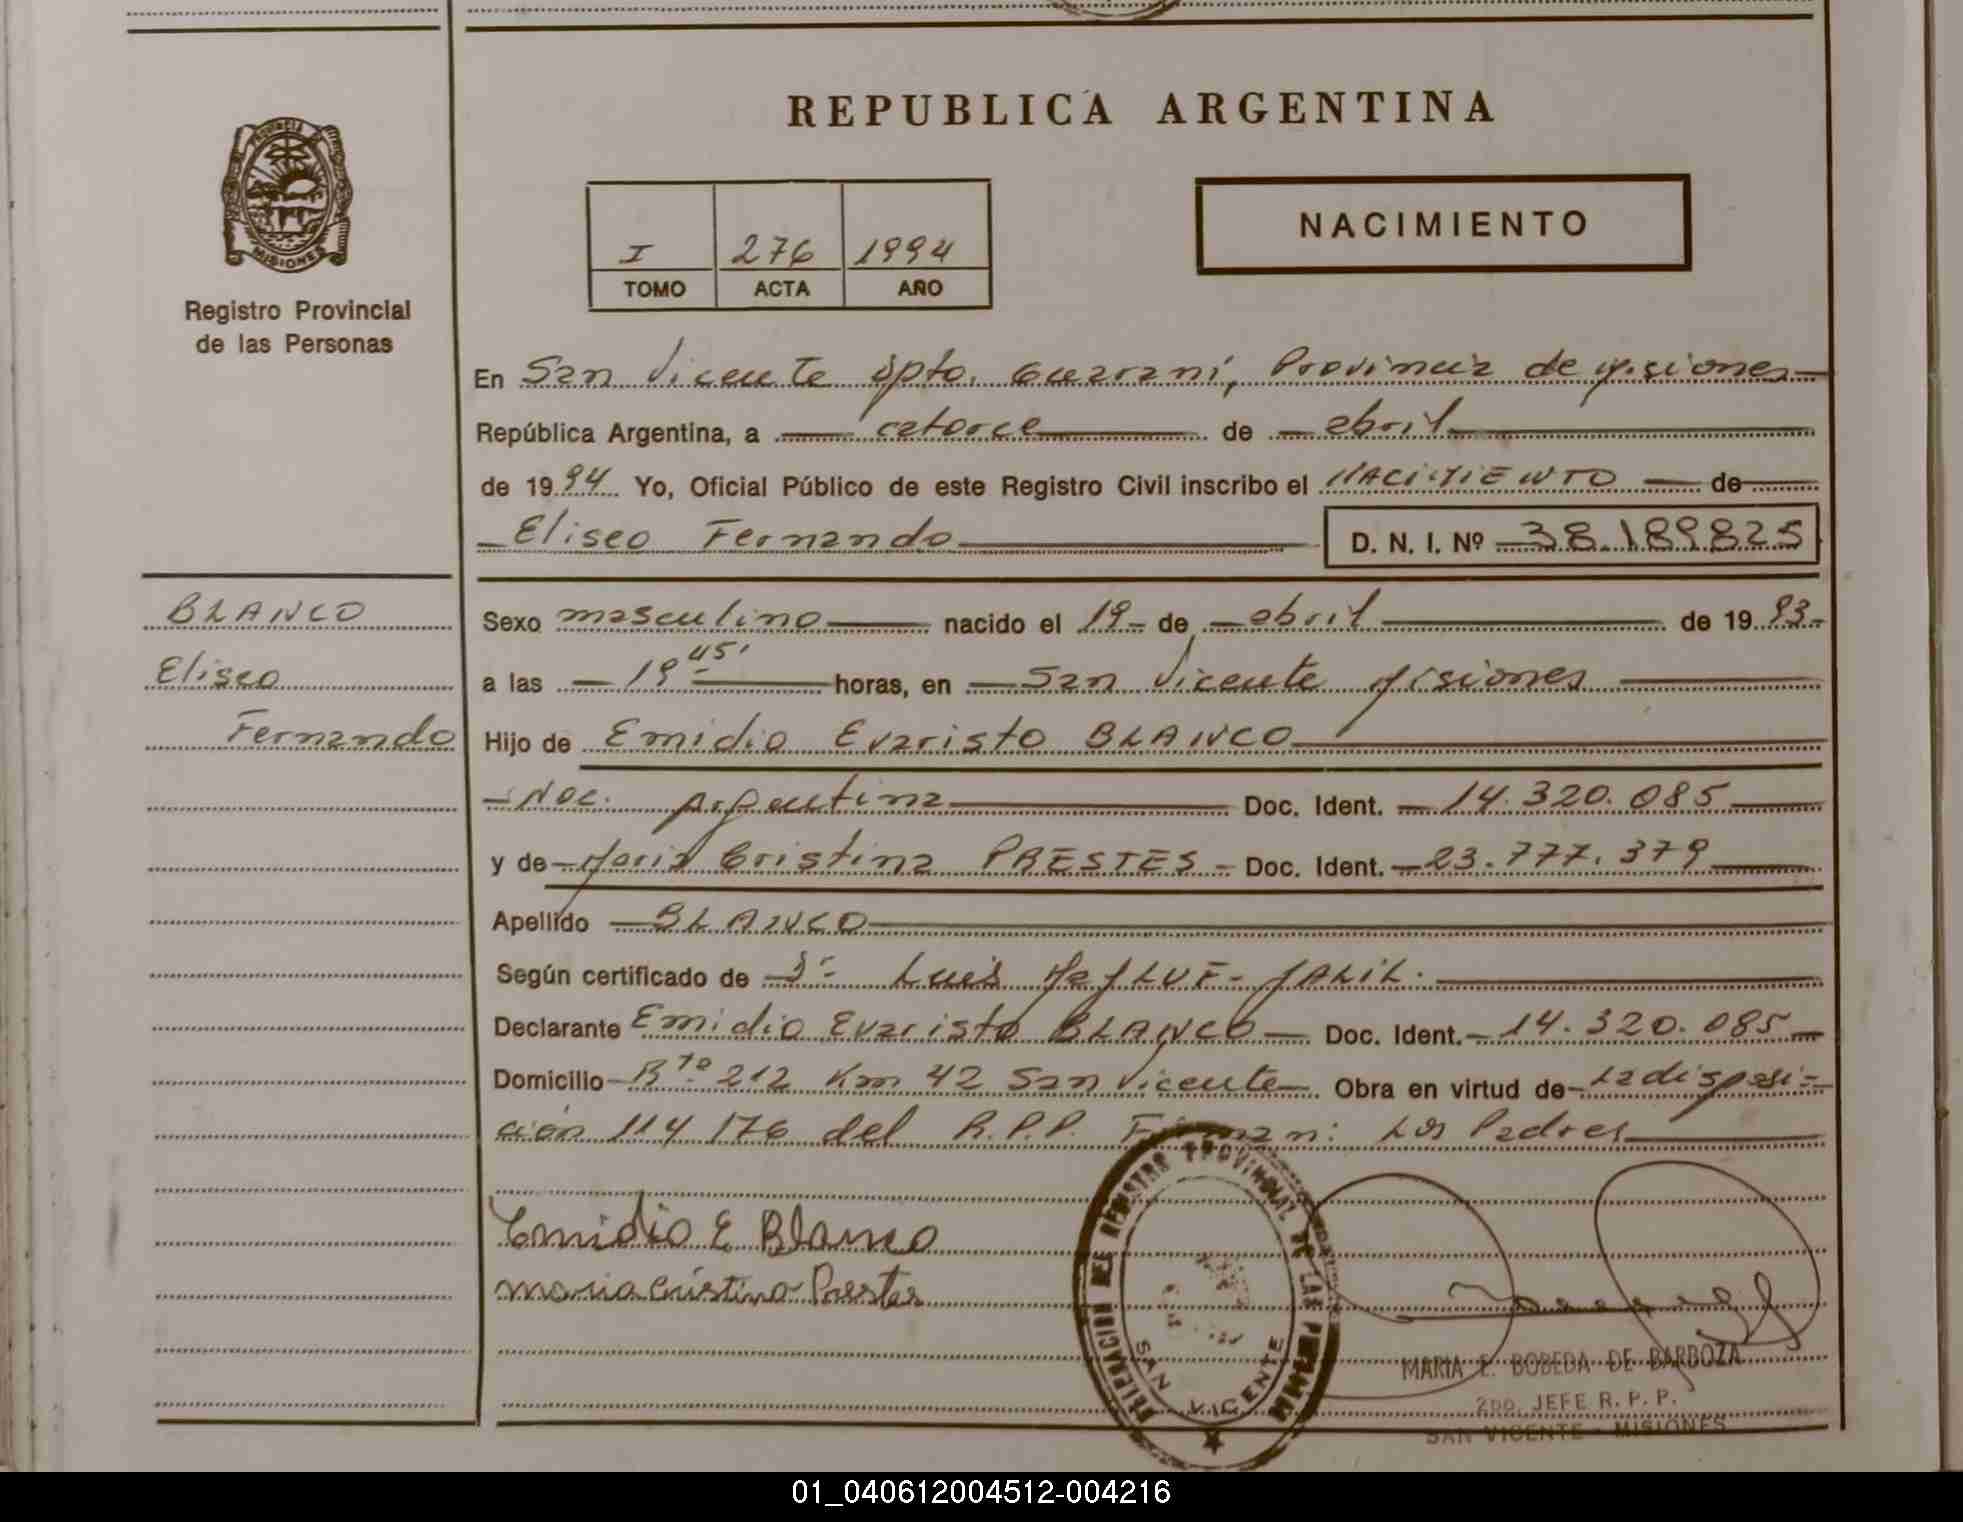 REPUBLICA ARGENTINA
PROVINCIA DE
MISIONES
Registro Provincial
de las Personas
I 276 1994
TOMO ACTA AÑO
NACIMIENTO
En San Vicente Dpto. Guaraní, Provincia de Misiones
República Argentina, a catorce de abril
de 1994 Yo, Oficial Público de este Registro Civil inscribo el NACIMIENTO de
Eliseo Fernando D. N. I. Nº 38.189825
BLANCO
Eliseo
Fernando
Sexo masculino nacido el 19 de abril de 1993
a las 19 45' horas, en San Vicente Misiones
Hijo de Emidio Evaristo BLANCO
Nac. Argentina Doc. Ident. 14.320.085
y de Maria Cristina PRESTES Doc. Ident. 23.777.379
Apellido BLANCO
Según certificado de Dr. Luis JALIL.
Declarante Emidio Evaristo BLANCO Doc. Ident. 14.320.085
Domicilio Rta 212 Km 42 San Vicente Obra en virtud de La disposi-
ción 114 176 del R.P.P. Firman: Los Padres
Emidio E Blanco
maria Cristina Prestes
DELEGACION DEL REGISTRO PROVINCIAL DE LAS PERSONAS
SAN VICENTE
MARIA E. BOBEDA DE BARBOZA
2DO. JEFE R. P. P.
SAN VICENTE - MISIONES
01_040612004512-004216